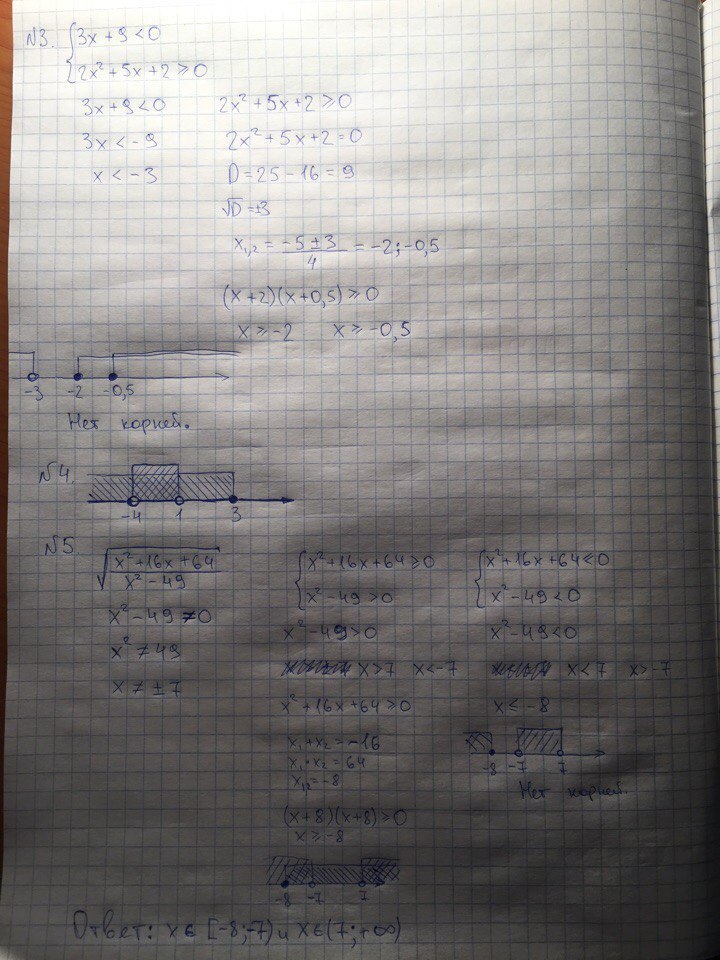 №3. { 3x + 9 < 0
2x² + 5x + 2 ≥ 0
3x + 9 < 0
3x < -9
x < -3
2x² + 5x + 2 ≥ 0
2x² + 5x + 2 = 0
D = 25 - 16 = 9
√D = ±3
x₁,₂ = (-5 ± 3)/4 = -2; -0,5
(x + 2)(x + 0,5) ≥ 0
x ≥ -2 x ≥ -0,5
-3 -2 -0,5
Нет корней.
№4.
-4 1 3
№5
√((x² + 16x + 64)/(x² - 49))
x² - 49 ≠ 0
x² ≠ 49
x ≠ ±7
{ x² + 16x + 64 ≥ 0
x² - 49 > 0
x² - 49 > 0
x > 7 x < -7
x² + 16x + 64 ≥ 0
x₁ + x₂ = -16
x₁ · x₂ = 64
x₁,₂ = -8
(x + 8)(x + 8) ≥ 0
x ≥ -8
-8 -7 7
{ x² + 16x + 64 ≤ 0
x² - 49 < 0
x² - 49 < 0
x < 7 x > -7
x ≤ -8
-8 -7 7
Нет корней.
Ответ: x ∈ [-8; -7) и x ∈ (7; +∞)